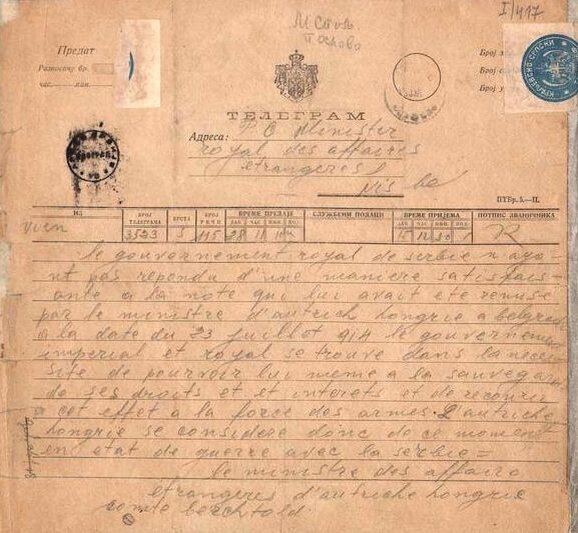 I/417
Предат
Разносачу бр.
час.
Број
Број
Број
КРАЉЕВСКО-СРПСКИ
ТЕЛЕГРАМ
Адреса: P O Minister
royal des affaires
etrangeres
Nis
ПТБр. 5.—II.
ИЗ БРОЈ ТЕЛЕГРАМА ВРСТА БРОЈ РЕЧИ ВРЕМЕ ПРЕДАЈЕ СЛУЖБЕНИ ПОДАЦИ ВРЕМЕ ПРИЈЕМА ПОТПИС ЗВАНИЧНИКА
ДАН ЧАС МИН. ДАН ЧАС МИН.
Vien 3523 5 115 28 11
le gouvernement royal de serbie n aya
nt pas rependu d'une maniere satisfais-
ante a la note qui lui avait ete remise
par le ministre d'autrich hongrie a belgrad
a la date du 23 juillot 914 le gouvernem
imperial et royal se trouve dans la neces
site de pourvoir lui meme a la sauvegar
de ses droits et et interets et de recourir
a cet effet a la force des armes. L autriche
hongrie se considere donc de ce moment
en etat de guerre avec la serbie=
le ministre des affairs
etrangeres d'autriche hongrie
comte berchtold.